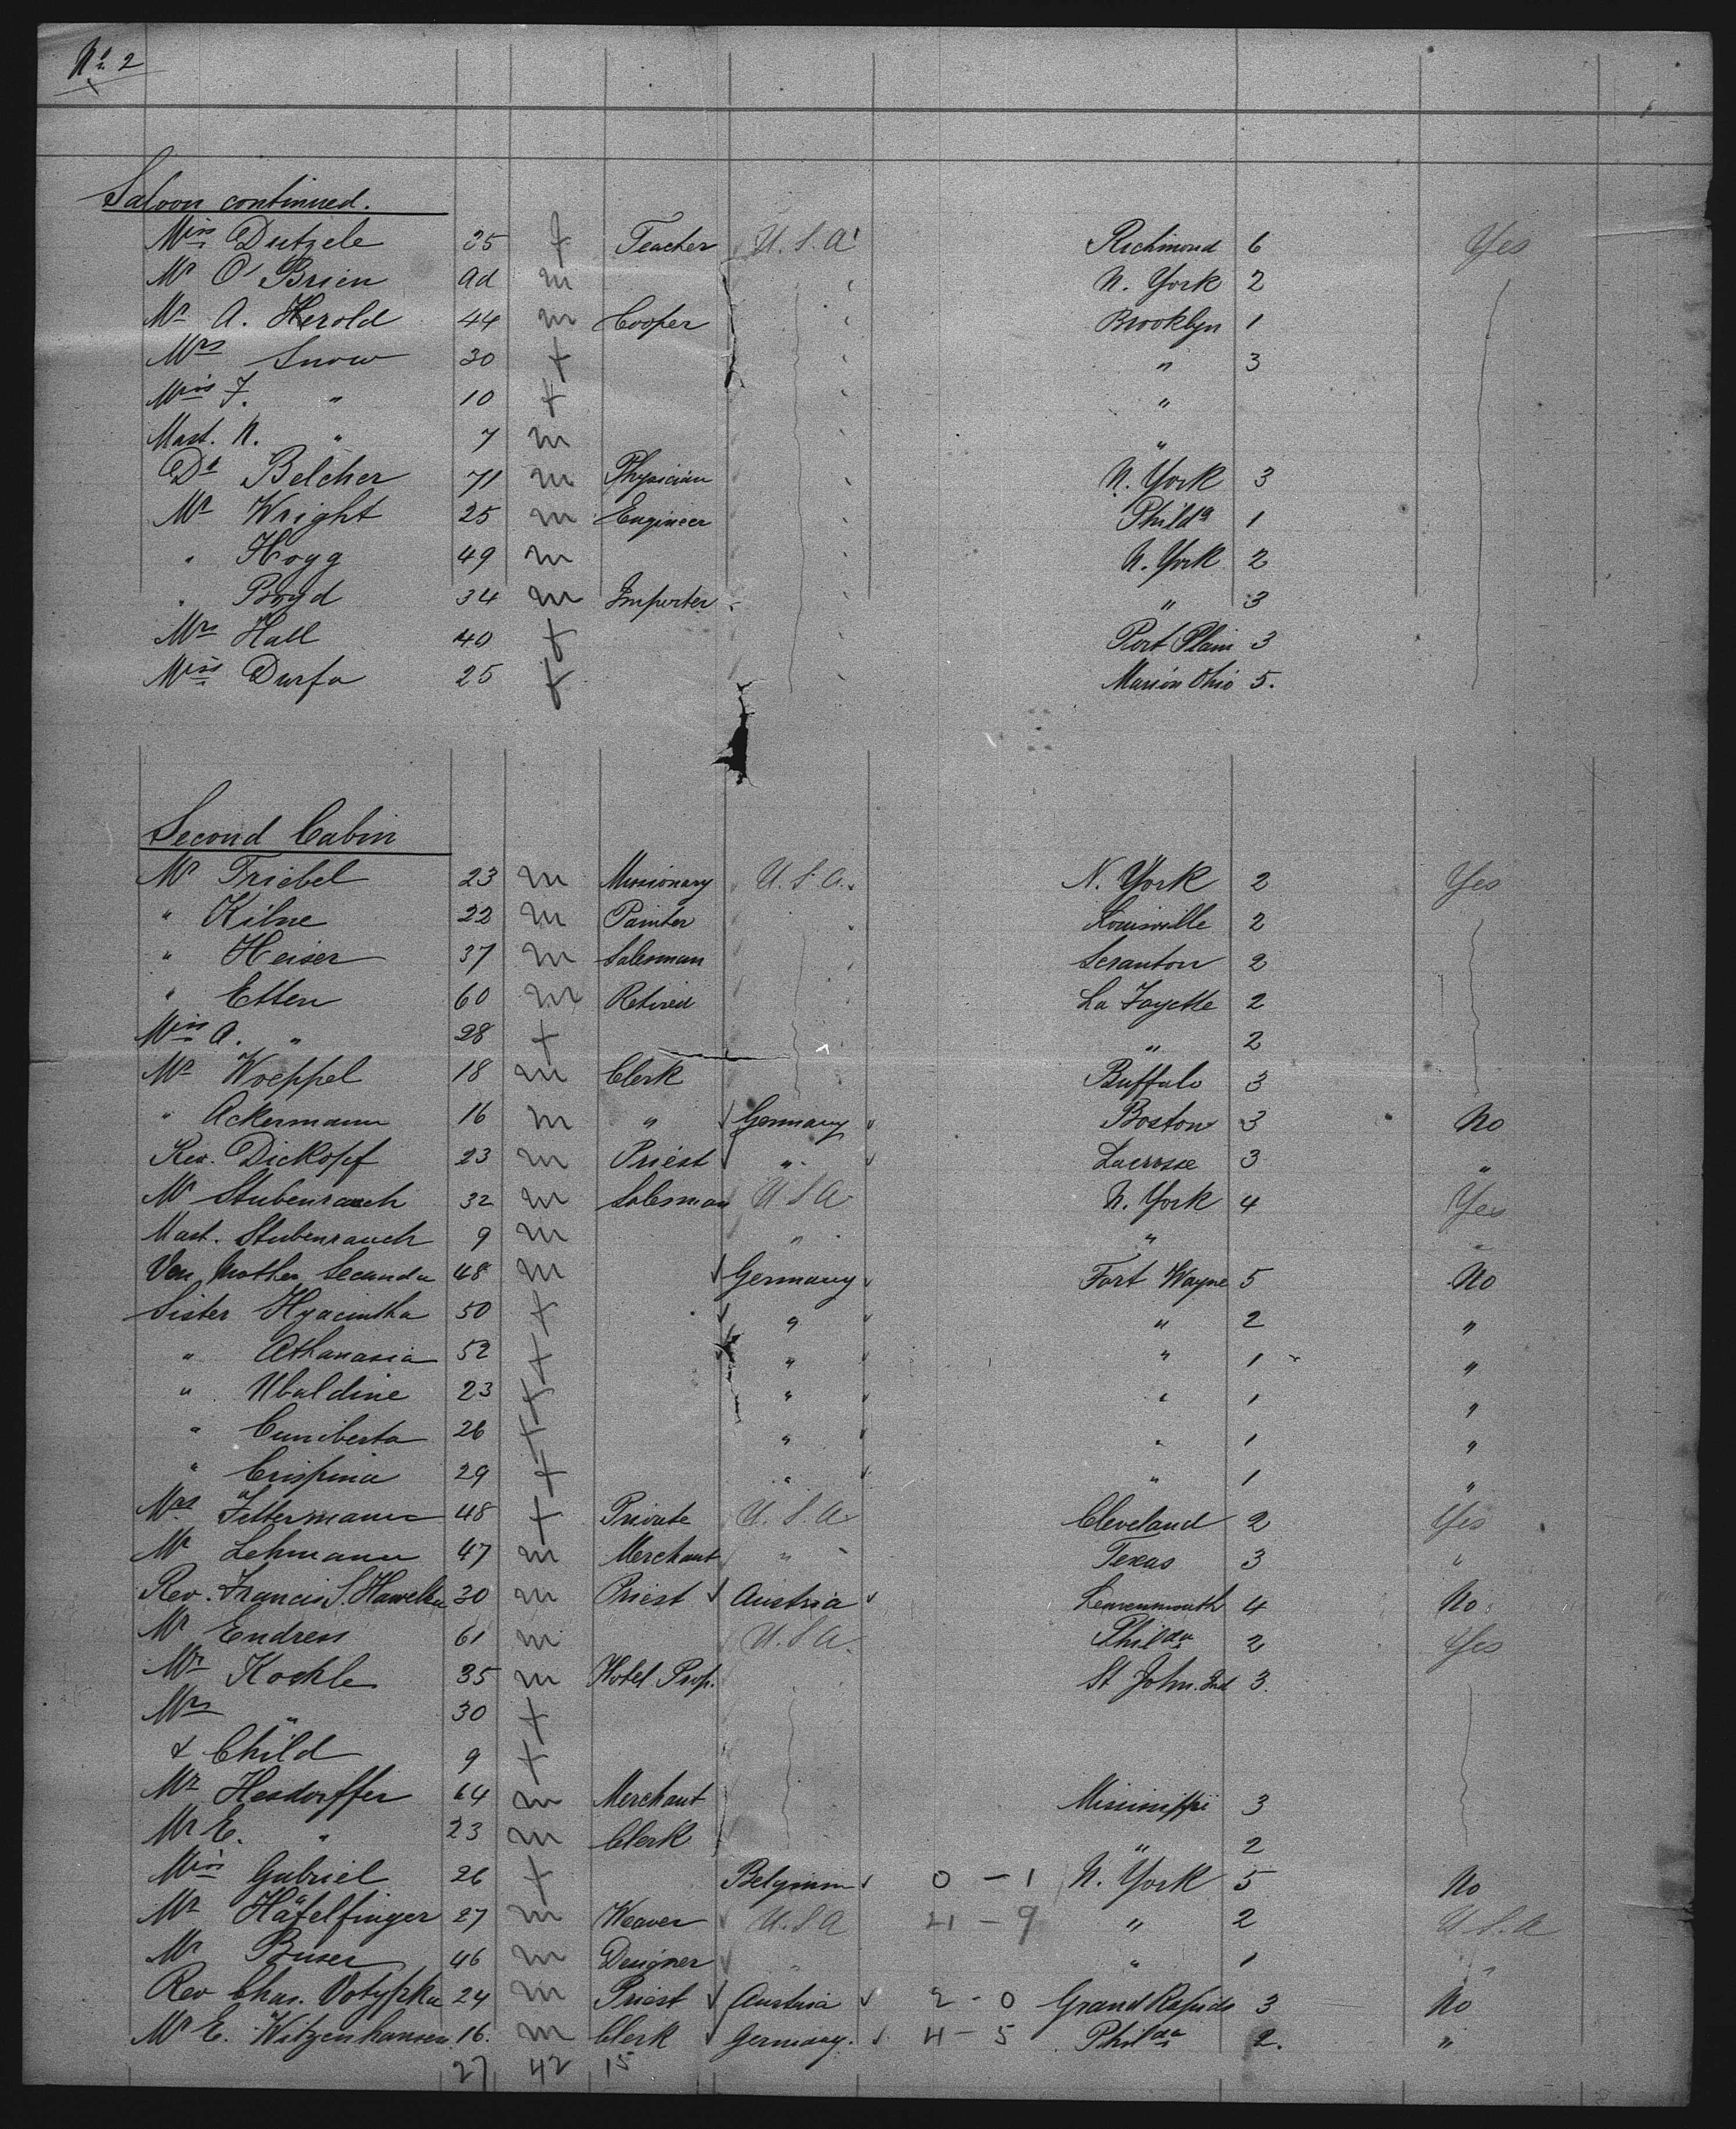 No. 2
Saloon continued.
Miss Dutzele 35 f Teacher U.S.A. Richmond 6 Yes
Mr O'Brien ad m N. York 2
Mr A. Herold 44 m Cooper Brooklyn 1
Mrs Snow 30 f " 3
Miss F. " 10 f "
Mast. N. " 7 m "
Dr Belcher 71 m Physician N. York 3
Mr Wright 25 m Engineer Philda 1
" Hogg 49 m N. York 2
" Boyd 34 m Importer " 3
Mrs Hall 40 f Port Plain 3
Miss Durfa 25 f Marion Ohio 5.
Second Cabin
Mr Triebel 23 m Missionary U.S.A. N. York 2 Yes
" Kilne 22 m Painter Louisville 2
" Heiser 37 m Salesman Scranton 2
" Etten 60 m Retired La Fayette 2
Miss A. " 28 f " 2
Mr Woeppel 18 m Clerk Buffalo 3
" Ackermann 16 m " Germany Boston 3 No
Rev. Dickopf 23 m Priest " Lacrosse 3 "
Mr Stubenrauch 32 m Salesman U.S.A. N. York 4 Yes
Mast. Stubenrauch 9 m " " "
Ven Mother Secunda 48 m Germany Fort Wayne 5 No
Sister Hyacintha 50 f " " 2 "
" Athanasia 52 f " " 1 "
" Ubaldine 23 f " " 1 "
" Cuniberta 26 f " " 1 "
" Crispina 29 f " " 1 "
Mrs Fettermann 48 f Private U.S.A. Cleveland 2 Yes
Mr Lehmann 47 m Merchant " Texas 3 "
Rev. Francis S. Hawelka 30 m Priest Austria 4 No.
Mr Endress 61 m U.S.A. Philda 2 Yes
Mr Kochle 35 m Hotel Prop. St John. Ind 3.
Mrs " 30 f
& Child 9 f
Mr Hesdorffer 64 m Merchant Missinippi 3
Mr E. " 23 m Clerk " 2
Miss Gabriel 26 f Belgium 0 - 1 N. York 5 No
Mr Häfelfinger 27 m Weaver U.S.A 21 - 9 " 2 U.S.A
Mr Buser 46 m Designer " " 1 "
Rev Chas. Votypka 24 m Priest Austria 2 - 0 Grand Rapids 3 No
Mr E. Witzenhausen 16. m Clerk Germany. 4 - 5 Philda 2. "
27 42 15